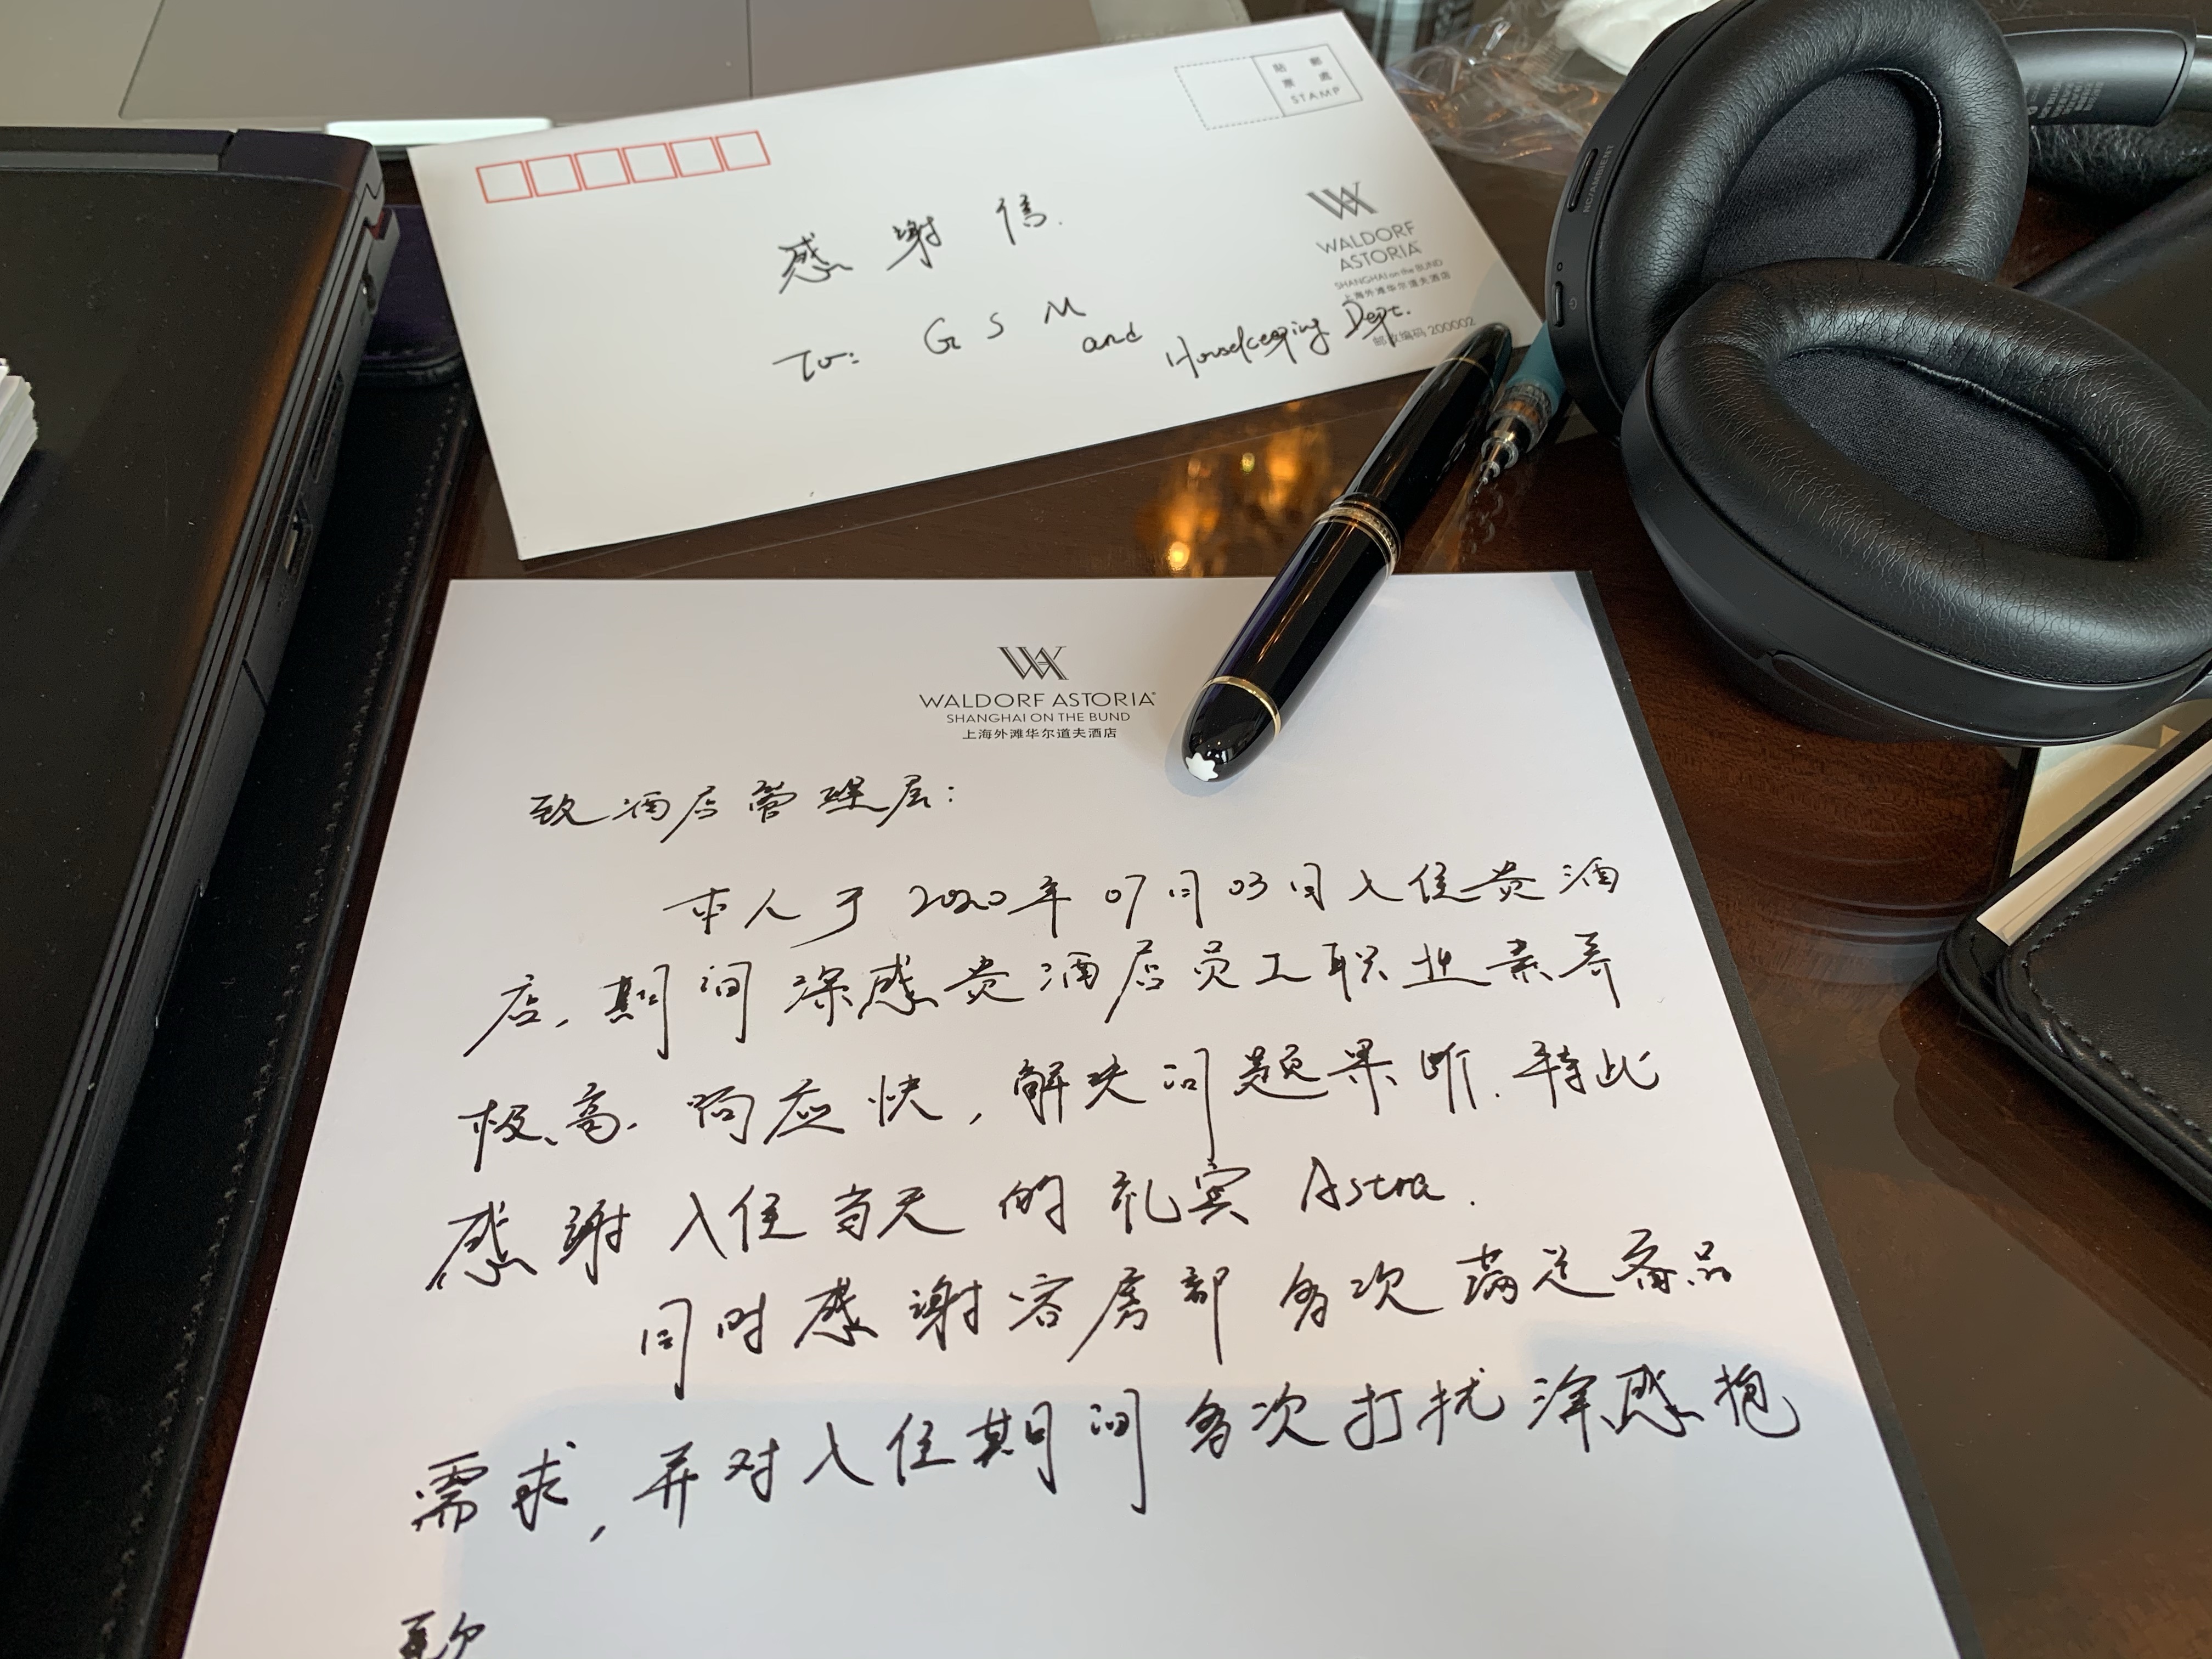 貼 郵
票 處
STAMP
感谢信.
To: GSM and Housekeeping Dept.
WALDORF
ASTORIA
SHANGHAI on the BUND
上海外滩华尔道夫酒店
邮政编码 200002
NC/AMBIENT
WALDORF ASTORIA
SHANGHAI ON THE BUND
上海外滩华尔道夫酒店
致酒店管理层:
本人于2020年07月03日入住贵酒
店,期间深感贵酒店员工职业素养
极高.响应快,解决问题果断.特此
感谢入住当天的礼宾Astra.
同时感谢客房部多次满足备品
需求,并对入住期间多次打扰深感抱
歉